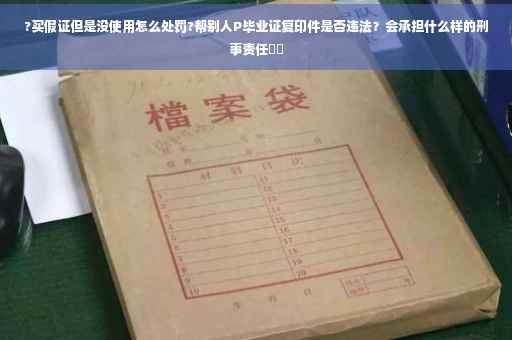 ?买假证但是没使用怎么处罚?帮别人P毕业证复印件是否违法？会承担什么样的刑
事责任
檔案袋
材料目次
1 11
2 12
3 13
4 14
5 15
6 16
7 17
8 18
9 19
10 20
年 月 日